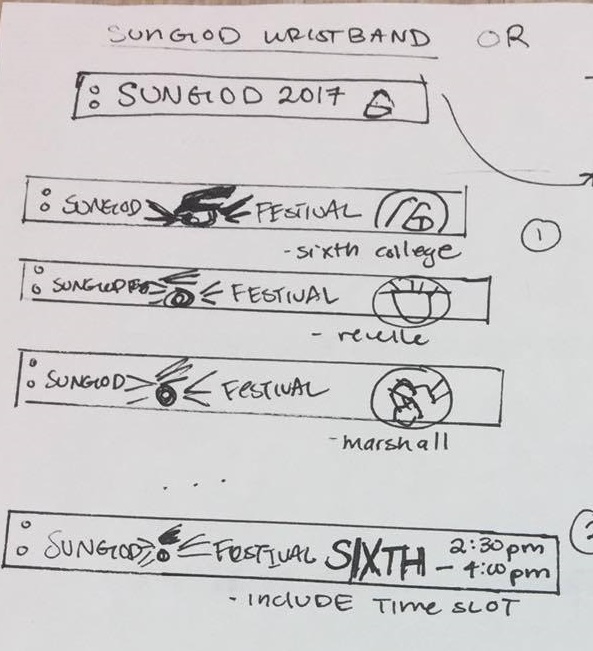 SUNGOD WRISTBAND OR
SUNGOD 2017 6
SUNGOD FESTIVAL 6
-sixth college
1
SUNGOD FESTIVAL
- revelle
SUNGOD FESTIVAL
-marshall
...
SUNGOD FESTIVAL SIXTH 2:30pm
- 4:00pm
- INCLUDE TIME SLOT
2